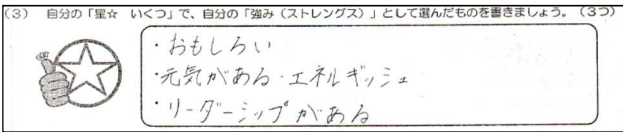 (3) 自分の「星☆ いくつ」で、自分の「強み(ストレングス)」として選んだものを書きましょう。(3つ)
・おもしろい
・元気がある・エネルギッシュ
・リーダーシップがある